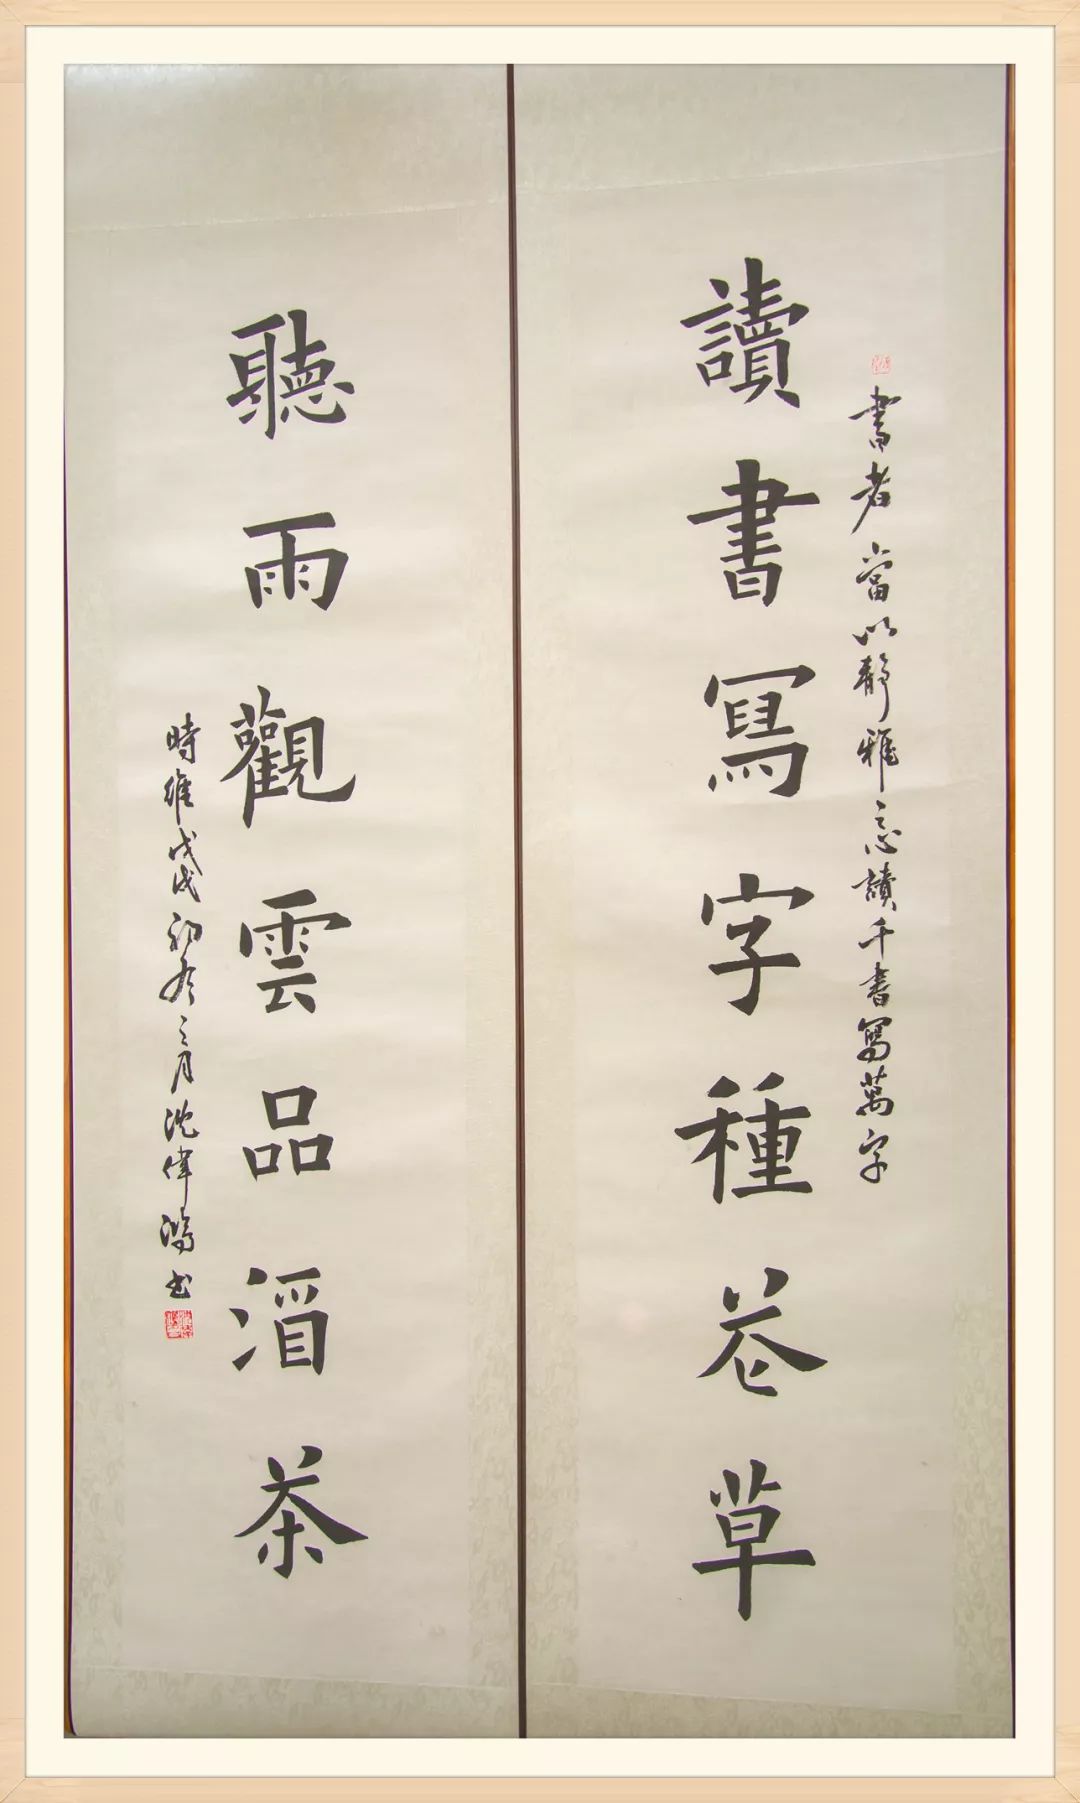 書者當以靜雅之心讀千書寫萬字
讀書寫字種花草
聽雨觀雲品酒茶
時維戊戌初冬之月沈偉鴻書